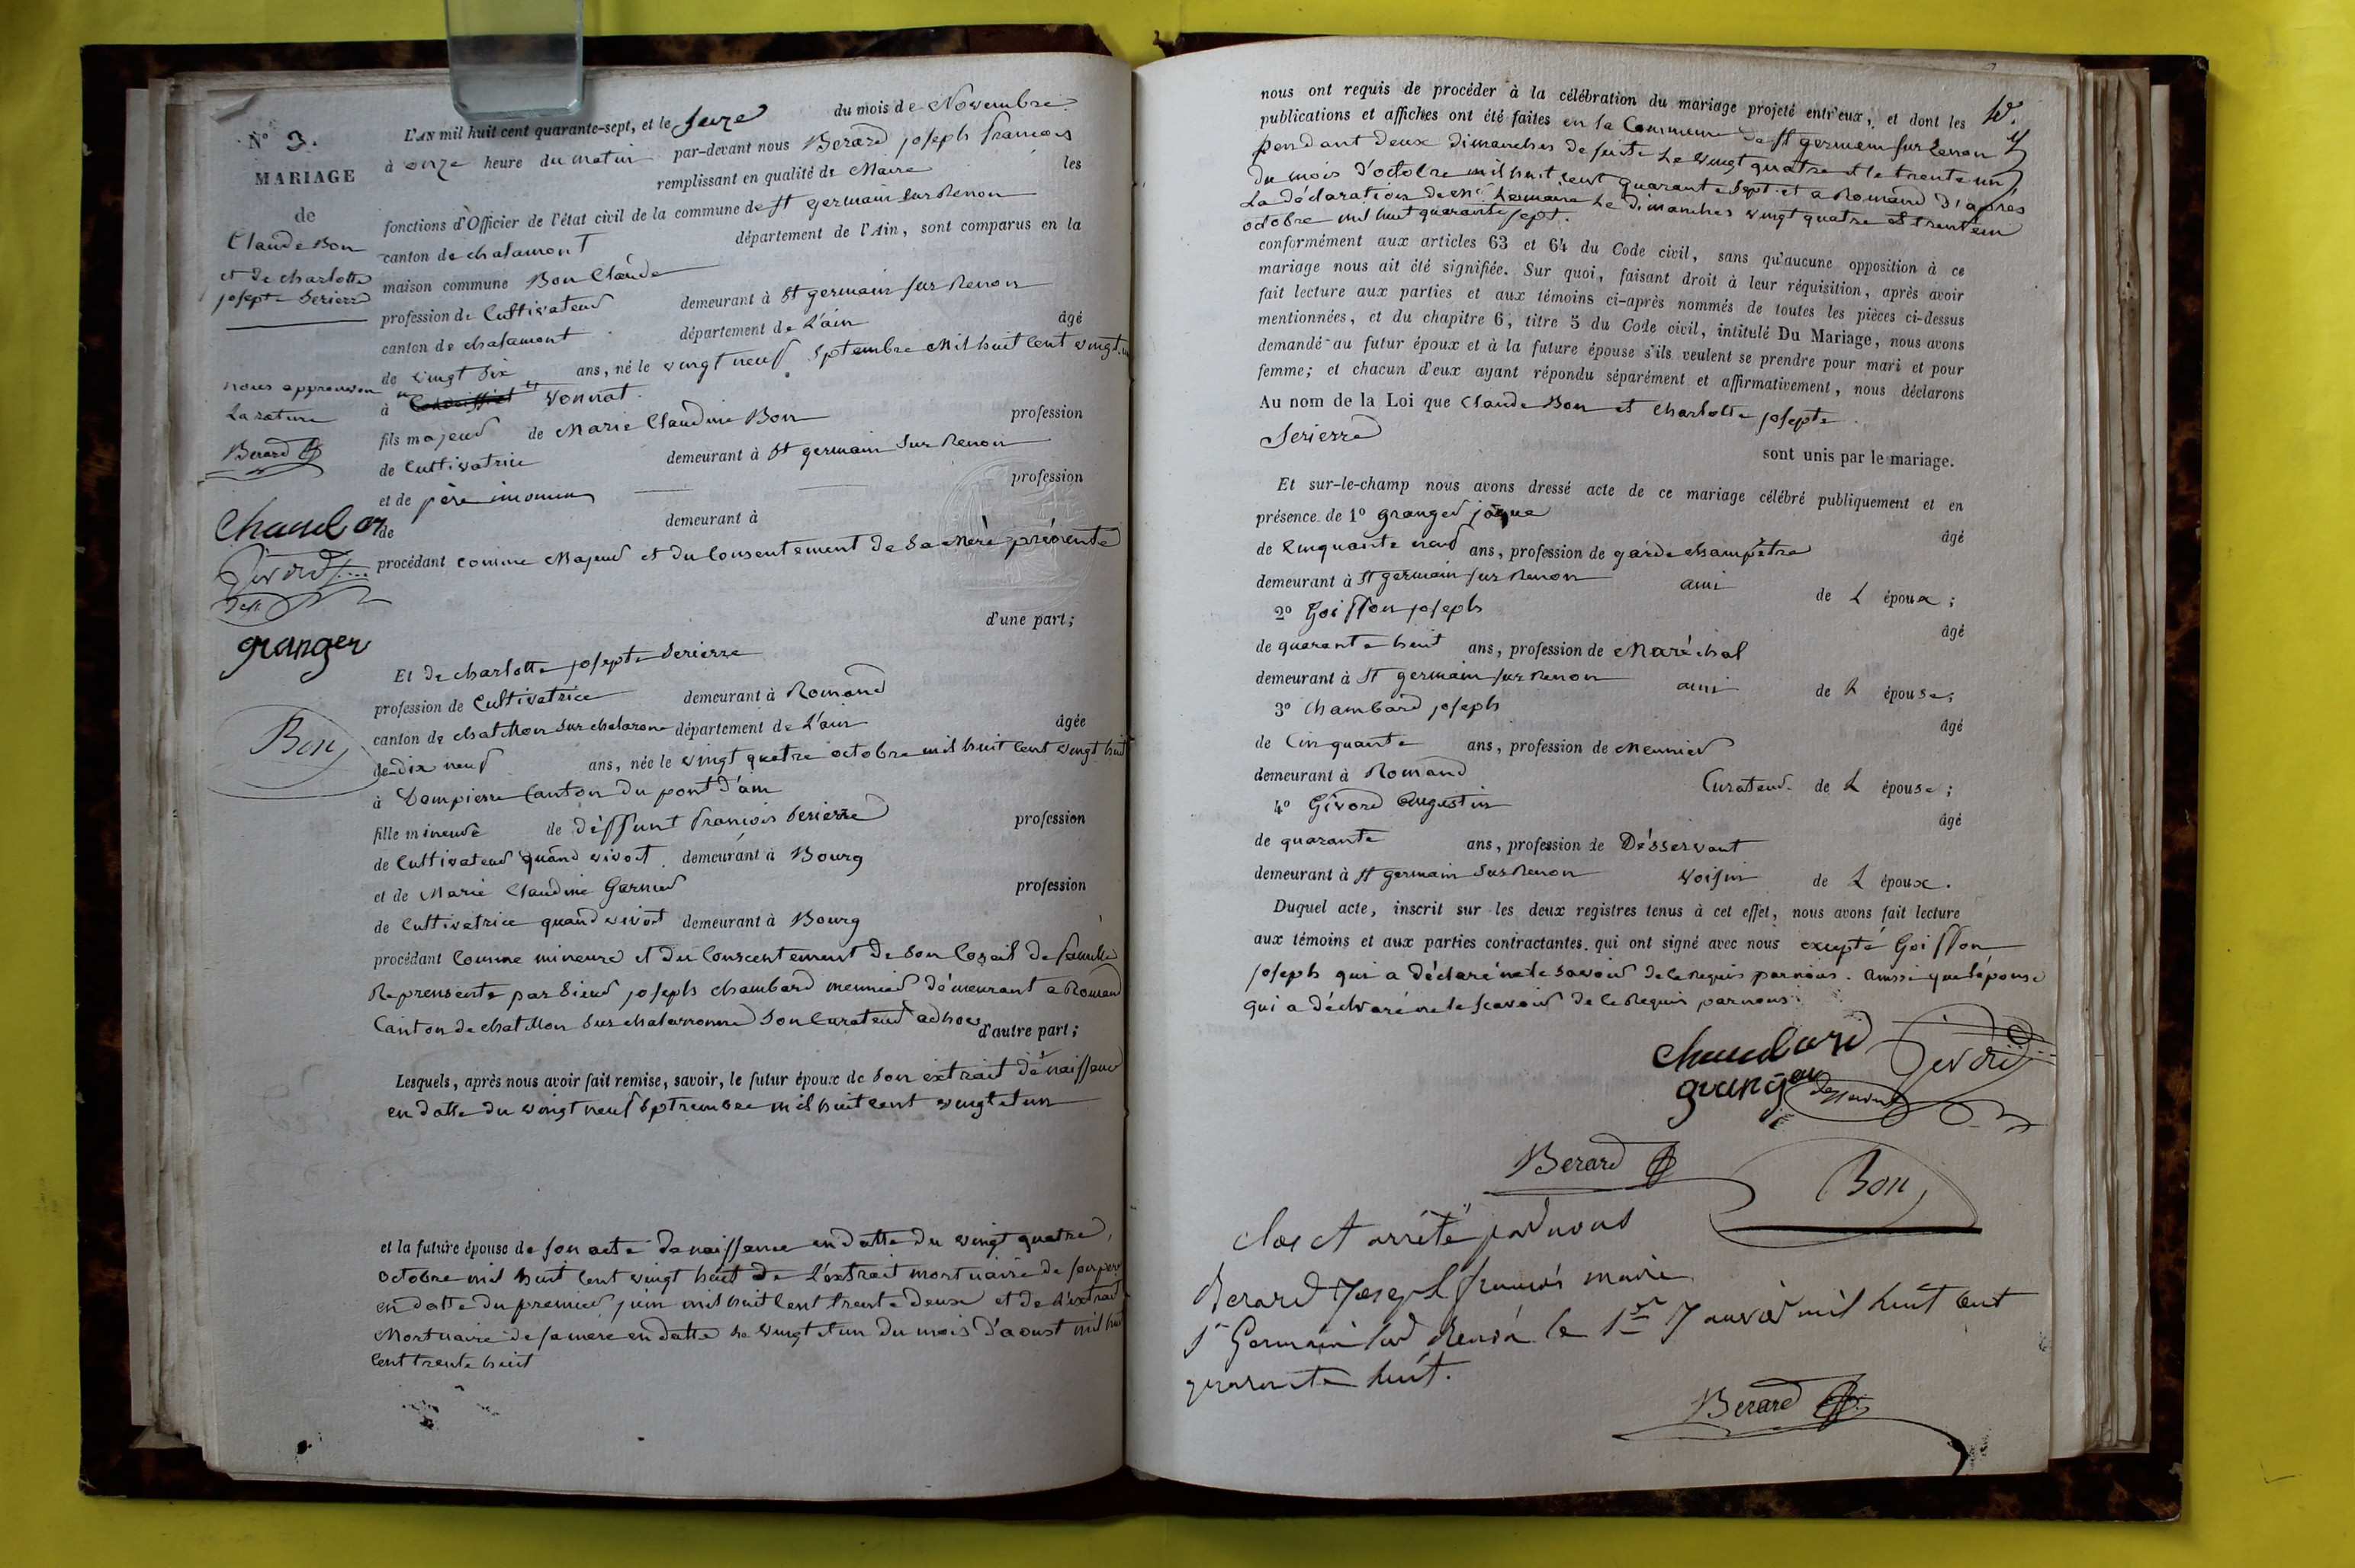 N° 3.
MARIAGE
de
Claude Bon
et de charlotte
josepte Serierre
nous approuvon
La rature
Berard
Chambar
Givord
granger
Bon
L'AN mil huit cent quarante-sept, et le seize du mois de Novembre
à onze heure du matin par-devant nous Berard joseph francois
remplissant en qualité de Maire les
fonctions d'Officier de l'état civil de la commune de St germain Sur Renon
canton de chalamont département de l'Ain, sont comparus en la
maison commune Bon Claude
profession de Cultivateur demeurant à St germain sur Renon
canton de chalamont département de L'ain âgé
de vingt Six ans, né le vingt neuf Septembre Mil huit Cent vingt un
à Vonnat
fils majeur de Marie Claudine Bon profession
de Cultivatrice demeurant à St germain Sur Renon
et de père inconnu profession
de demeurant à
procédant comme Majeur et du Consentement de Sa Mère présente
d'une part;
Et de charlotte josepte Serierre
profession de Cultivatrice demeurant à Romand
canton de chatillon Sur chalarone département de L'ain âgée
de dix neuf ans, née le vingt quatre octobre mil huit Cent vingt huit
à Dompierre Canton du pont d'ain
fille mineure de déffunt francois Serierre profession
de Cultivateur quand vivoit demeurant à Bourg
et de Marie Claudine Garnier profession
de Cultivatrice quand vivoit demeurant à Bourg
procédant Comme mineure et du Consentement de Son Conseil de famille
Représente par Sieur joseph chambard meunier démeurant a Romand
Canton de chatillon Sur chalarronne Son Curateur adhoc d'autre part;
Lesquels, après nous avoir fait remise, savoir, le futur époux de Son extrait dé naissance
en datte du vingt neuf Septrembre mil huit Cent vingt et un
et la future épouse de son acte de naissance en datte du vingt quatre
octobre mil huit Cent vingt huit de L'extrait mortuaire de son père
en datte du premier juin mil huit Cent trente deux et de L'extrait
Mortuaire de sa mère en datte Le vingt et un du mois d'aoust mil huit
Cent trente huit
nous ont requis de procéder à la célébration du mariage projeté entr'eux, et dont les
publications et affiches ont été faites en la Commune de St germain sur Renon
pendant deux dimanches de suite Le vingt quatre et le trente un
du mois d'octobre mil huit Cent quarante Sept et a Romand d'après
La déclaration de Mr Le maire Le dimanches vingt quatre et trente un
octobre mil huit quarante sept.
conformément aux articles 63 et 64 du Code civil, sans qu'aucune opposition à ce
mariage nous ait été signifiée. Sur quoi, faisant droit à leur réquisition, après avoir
fait lecture aux parties et aux témoins ci-après nommés de toutes les pièces ci-dessus
mentionnées, et du chapitre 6, titre 5 du Code civil, intitulé Du Mariage, nous avons
demandé au futur époux et à la future épouse s'ils veulent se prendre pour mari et pour
femme; et chacun d'eux ayant répondu séparément et affirmativement, nous déclarons
Au nom de la Loi que Claude Bon et Charlotte josepte
Serierre
sont unis par le mariage.
Et sur-le-champ nous avons dressé acte de ce mariage célébré publiquement et en
présence de 1° granger jaque âgé
de Cinquante neuf ans, profession de garde champêtre
demeurant à St germain sur Renon ami de L époux;
2° Goiffon joseph âgé
de quarante huit ans, profession de Maréchal
demeurant à St germain sur Renon ami de L épouse;
3° Chambard joseph âgé
de Cinquante ans, profession de Meunier
demeurant à Romand Curateur de L épouse;
4° Givord Augustin âgé
de quarante ans, profession de Désservant
demeurant à St germain Sur Renon voisin de L époux.
Duquel acte, inscrit sur les deux registres tenus à cet effet, nous avons fait lecture
aux témoins et aux parties contractantes, qui ont signé avec nous excepté Goiffon
joseph qui a déclaré ne le Savoir de Ce Requis par nous. Aussi que L'épouse
qui a déclaré ne le Scavoir de Ce Requis par nous.
Chambard Givord
granger desservant
Berard Bon
Clos et arrêté par nous
Berard Joseph francois maire
St Germain sur Renon le 1er Janvier mil huit Cent
quarante huit.
Berard